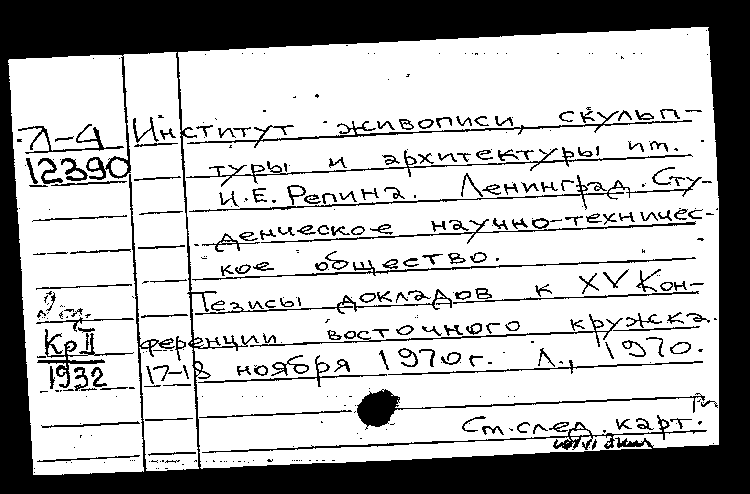 Л-4 Институт живописи, скульп-
12390 туры и архитектуры им.
И.Е. Репина. Ленинград. Сту-
денческое научно-техничес-
кое общество.
Тезисы докладов к XV Кон-
Кр II ференции восточного кружка.
1932 17-18 ноября 1970г. Л., 1970.
См. след. карт.